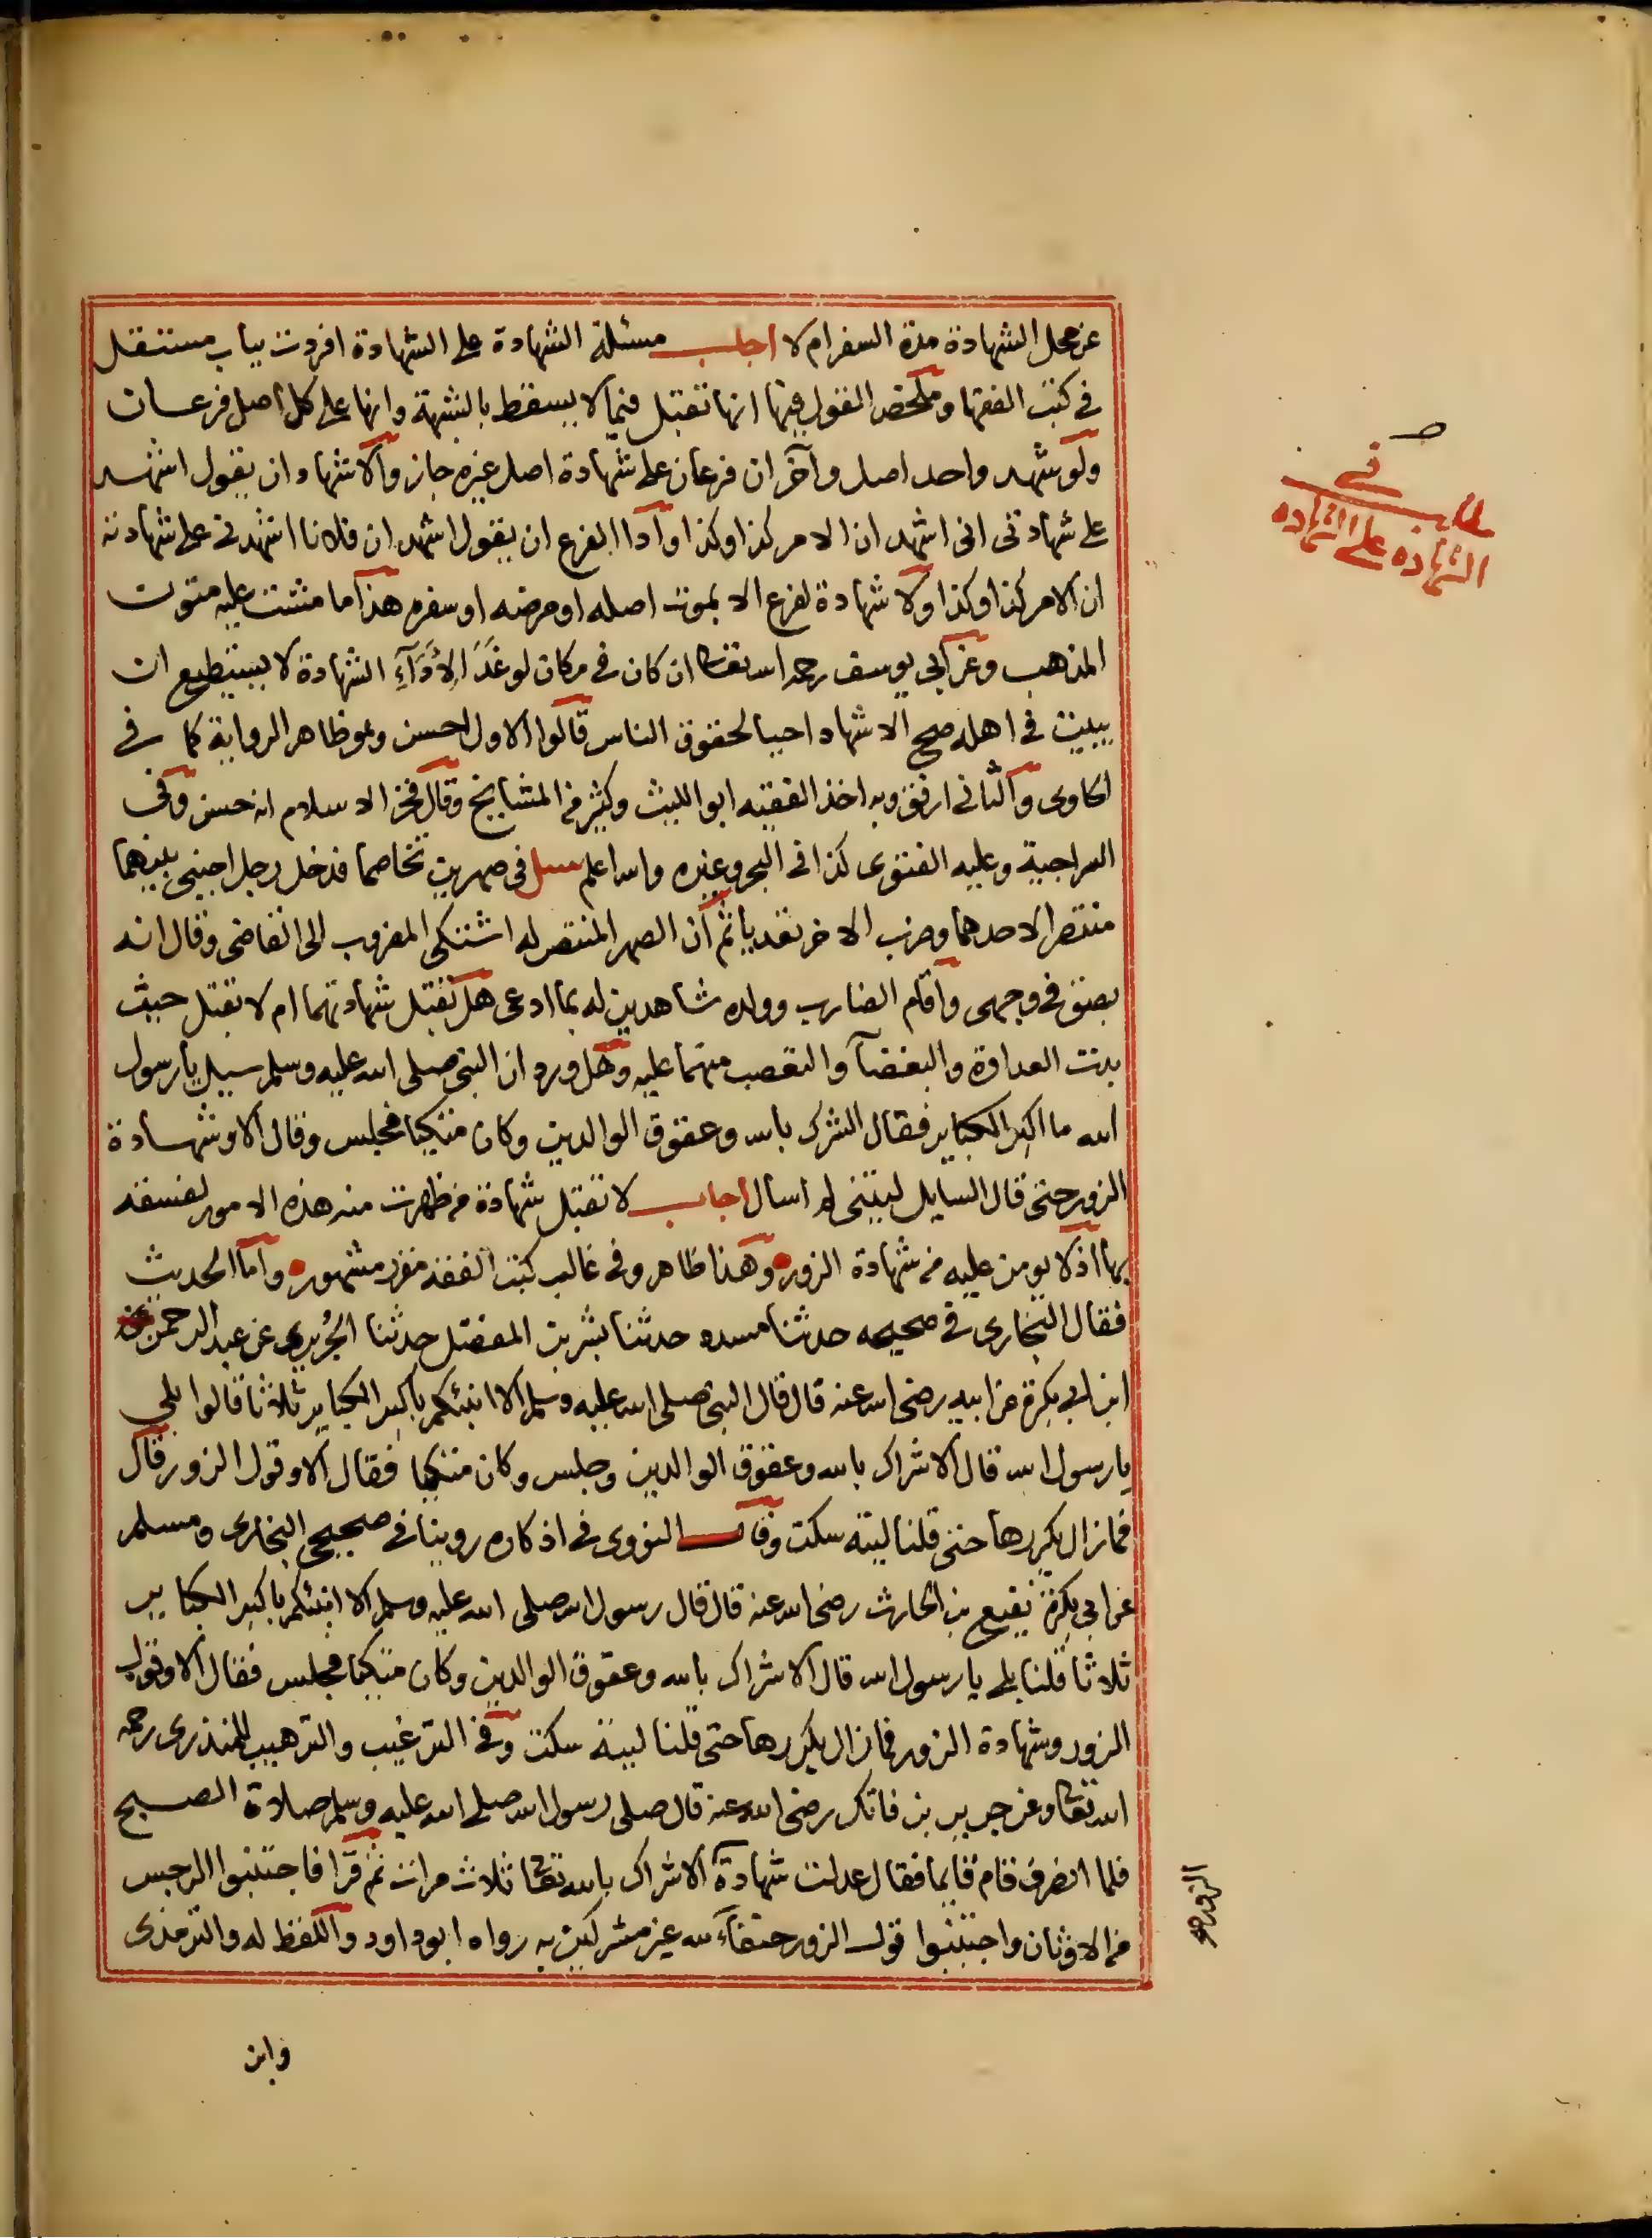 عن محل الشهادة مدة السفر ام لا اجاب مسئلة الشهادة على الشهادة افردت بباب مستقل
في كتب الفقها وملخص القول فيها انها تقبل فيما لا يسقط بالشبهة وانها على كل اصل فرعان
ولو شهد واحد اصل وآخران فرعان على شهادة اصل غيره جاز والاشهاد ان يقول اشهد
على شهادتي اني اشهد ان الامر كذا وكذا وادا الفرع ان يقول اشهد ان فلانا اشهدني على شهادته
ان الامر كذا وكذا ولا شهادة لفرع الا بموت اصله او مرضه او سفره هذا ما مشت عليه متون
المذهب وعن ابي يوسف رحمه الله تعالى ان كان في مكان لو غَدَا لِأَدَآءِ الشهادة لا يستطيع ان
يبيت في اهله صح الاشهاد احيا لحقوق الناس قالوا الاول احسن وهو ظاهر الرواية كما في
الحاوى والثاني ارفق وبه اخذ الفقيه ابو الليث وكثير من المشايخ وقال فخر الاسلام انه حسن وفي
السراجية وعليه الفتوى كذا في البحر وغيره والله اعلم سيل في صهرين تخاصما فدخل رجل اجنبي بينهما
منتصرا لاحدهما وضرب الاخر تعديا ثم ان الصهر المنتصر له اشتكى المضروب الى القاضي وقال انه
بصق في وجهى واقام الضارب وولده شاهدين له بما ادعى هل تقبل شهادتهما ام لا تقبل حيث
بدت العداوة والبغضآ والتعصب منهما عليه وهل ورد ان النبي صلى الله عليه وسلم سيل يا رسول
الله ما اكبر الكباير فقال الشرك بالله وعقوق الوالدين وكان متكيا فجلس وقال الا وشهادة
الزور حتى قال السايل ليتني لم اسال اجاب لا تقبل شهادة من ظهرت منه هذه الامور لفسقه
بها اذ لا يومن عليه من شهادة الزور وهذا ظاهر وفي غالب كتب الفقه مقرر مشهور واما الحديث
فقال البخارى في صحيحه حدثنا مسدد حدثنا بشر بن المفضل حدثنا الجُريرى عن عبد الرحمن
ابن ابي بكرة عن ابيه رضى الله عنه قال قال النبي صلى الله عليه وسلم الا انبئكم باكبر الكباير ثلاثا قالوا بلى
يا رسول الله قال الاشراك بالله وعقوق الوالدين وجلس وكان متكيا فقال الا وقول الزور قال
فما زال يكررها حتى قلنا ليته سكت وقال النووى في اذكاره روينا في صحيحى البخارى ومسلم
عن ابي بكرة نفيع بن الحارث رضى الله عنه قال قال رسول الله صلى الله عليه وسلم الا انبئكم باكبر الكباير
ثلاثا قلنا بلى يا رسول الله قال الاشراك بالله وعقوق الوالدين وكان متكيا فجلس فقال الا وقول
الزور وشهادة الزور فما زال يكررها حتى قلنا ليته سكت وفي الترغيب والترهيب للمنذرى رحمه
الله تعالى وعن خريم بن فاتك رضى الله عنه قال صلى رسول الله صلى الله عليه وسلم صلاة الصبح
فلما انصرف قام قايما فقال عدلت شهادة الاشراك بالله تعالى ثلاث مرات ثم قرا فاجتنبوا الرجس
من الاوثان واجتنبوا قول الزور حنفآء لله غير مشركين به رواه ابو داود واللفظ له والترمذى
وابن
مطلب في
الشهادة على الشهادة
الزور صح